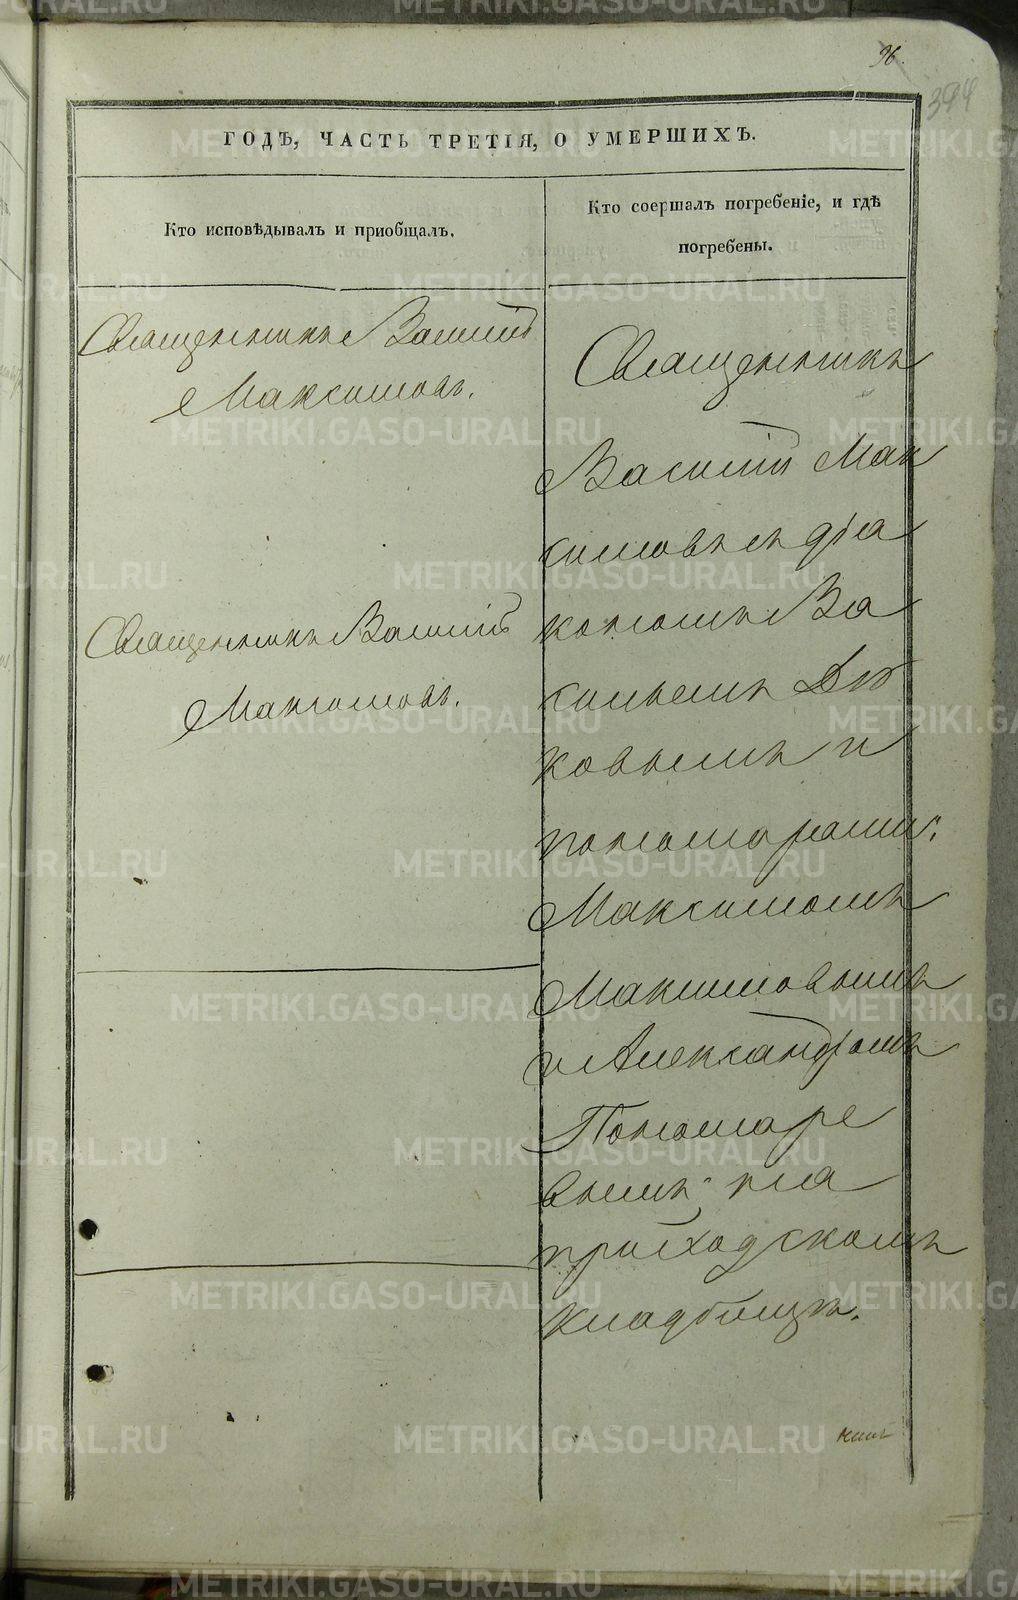 96.
394
ГОДЪ, ЧАСТЬ ТРЕТІЯ, О УМЕРШИХЪ.
Кто исповѣдывалъ и пріобщалъ.
Кто соершалъ погребеніе, и гдѣ
погребены.
Священникъ Василій
Максимовъ.
Священникъ Василій
Максимовъ.
Священникъ
Василій Мак
симовъ съ діа
кономъ Ва
сильемъ
ковымъ и
пономарями:
Максимомъ
Максимовымъ
и Александромъ
Пономаре
вымъ; на
приходскомъ
кладбищѣ.
METRIKI.GASO-URAL.RU